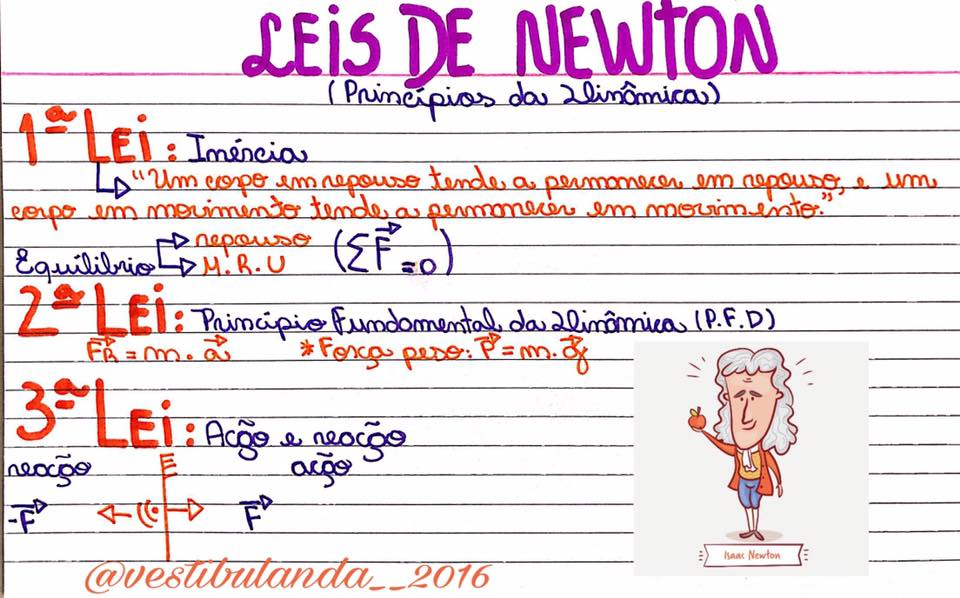 LEIS DE NEWTON
(Princípios da Dinâmica)
1ª LEI: Inércia
"Um corpo em repouso tende a permanecer em repouso, e um
corpo em movimento tende a permanecer em movimento."
Equilíbrio repouso (∑F⃗ = 0)
M.R.U
2ª LEI: Princípio Fundamental da Dinâmica (P.F.D)
F⃗R = m.a⃗ *Força peso: P⃗ = m.g⃗
3ª LEI: Ação e reação
reação ação
-F⃗ F⃗
Isaac Newton
@vestibulanda__2016